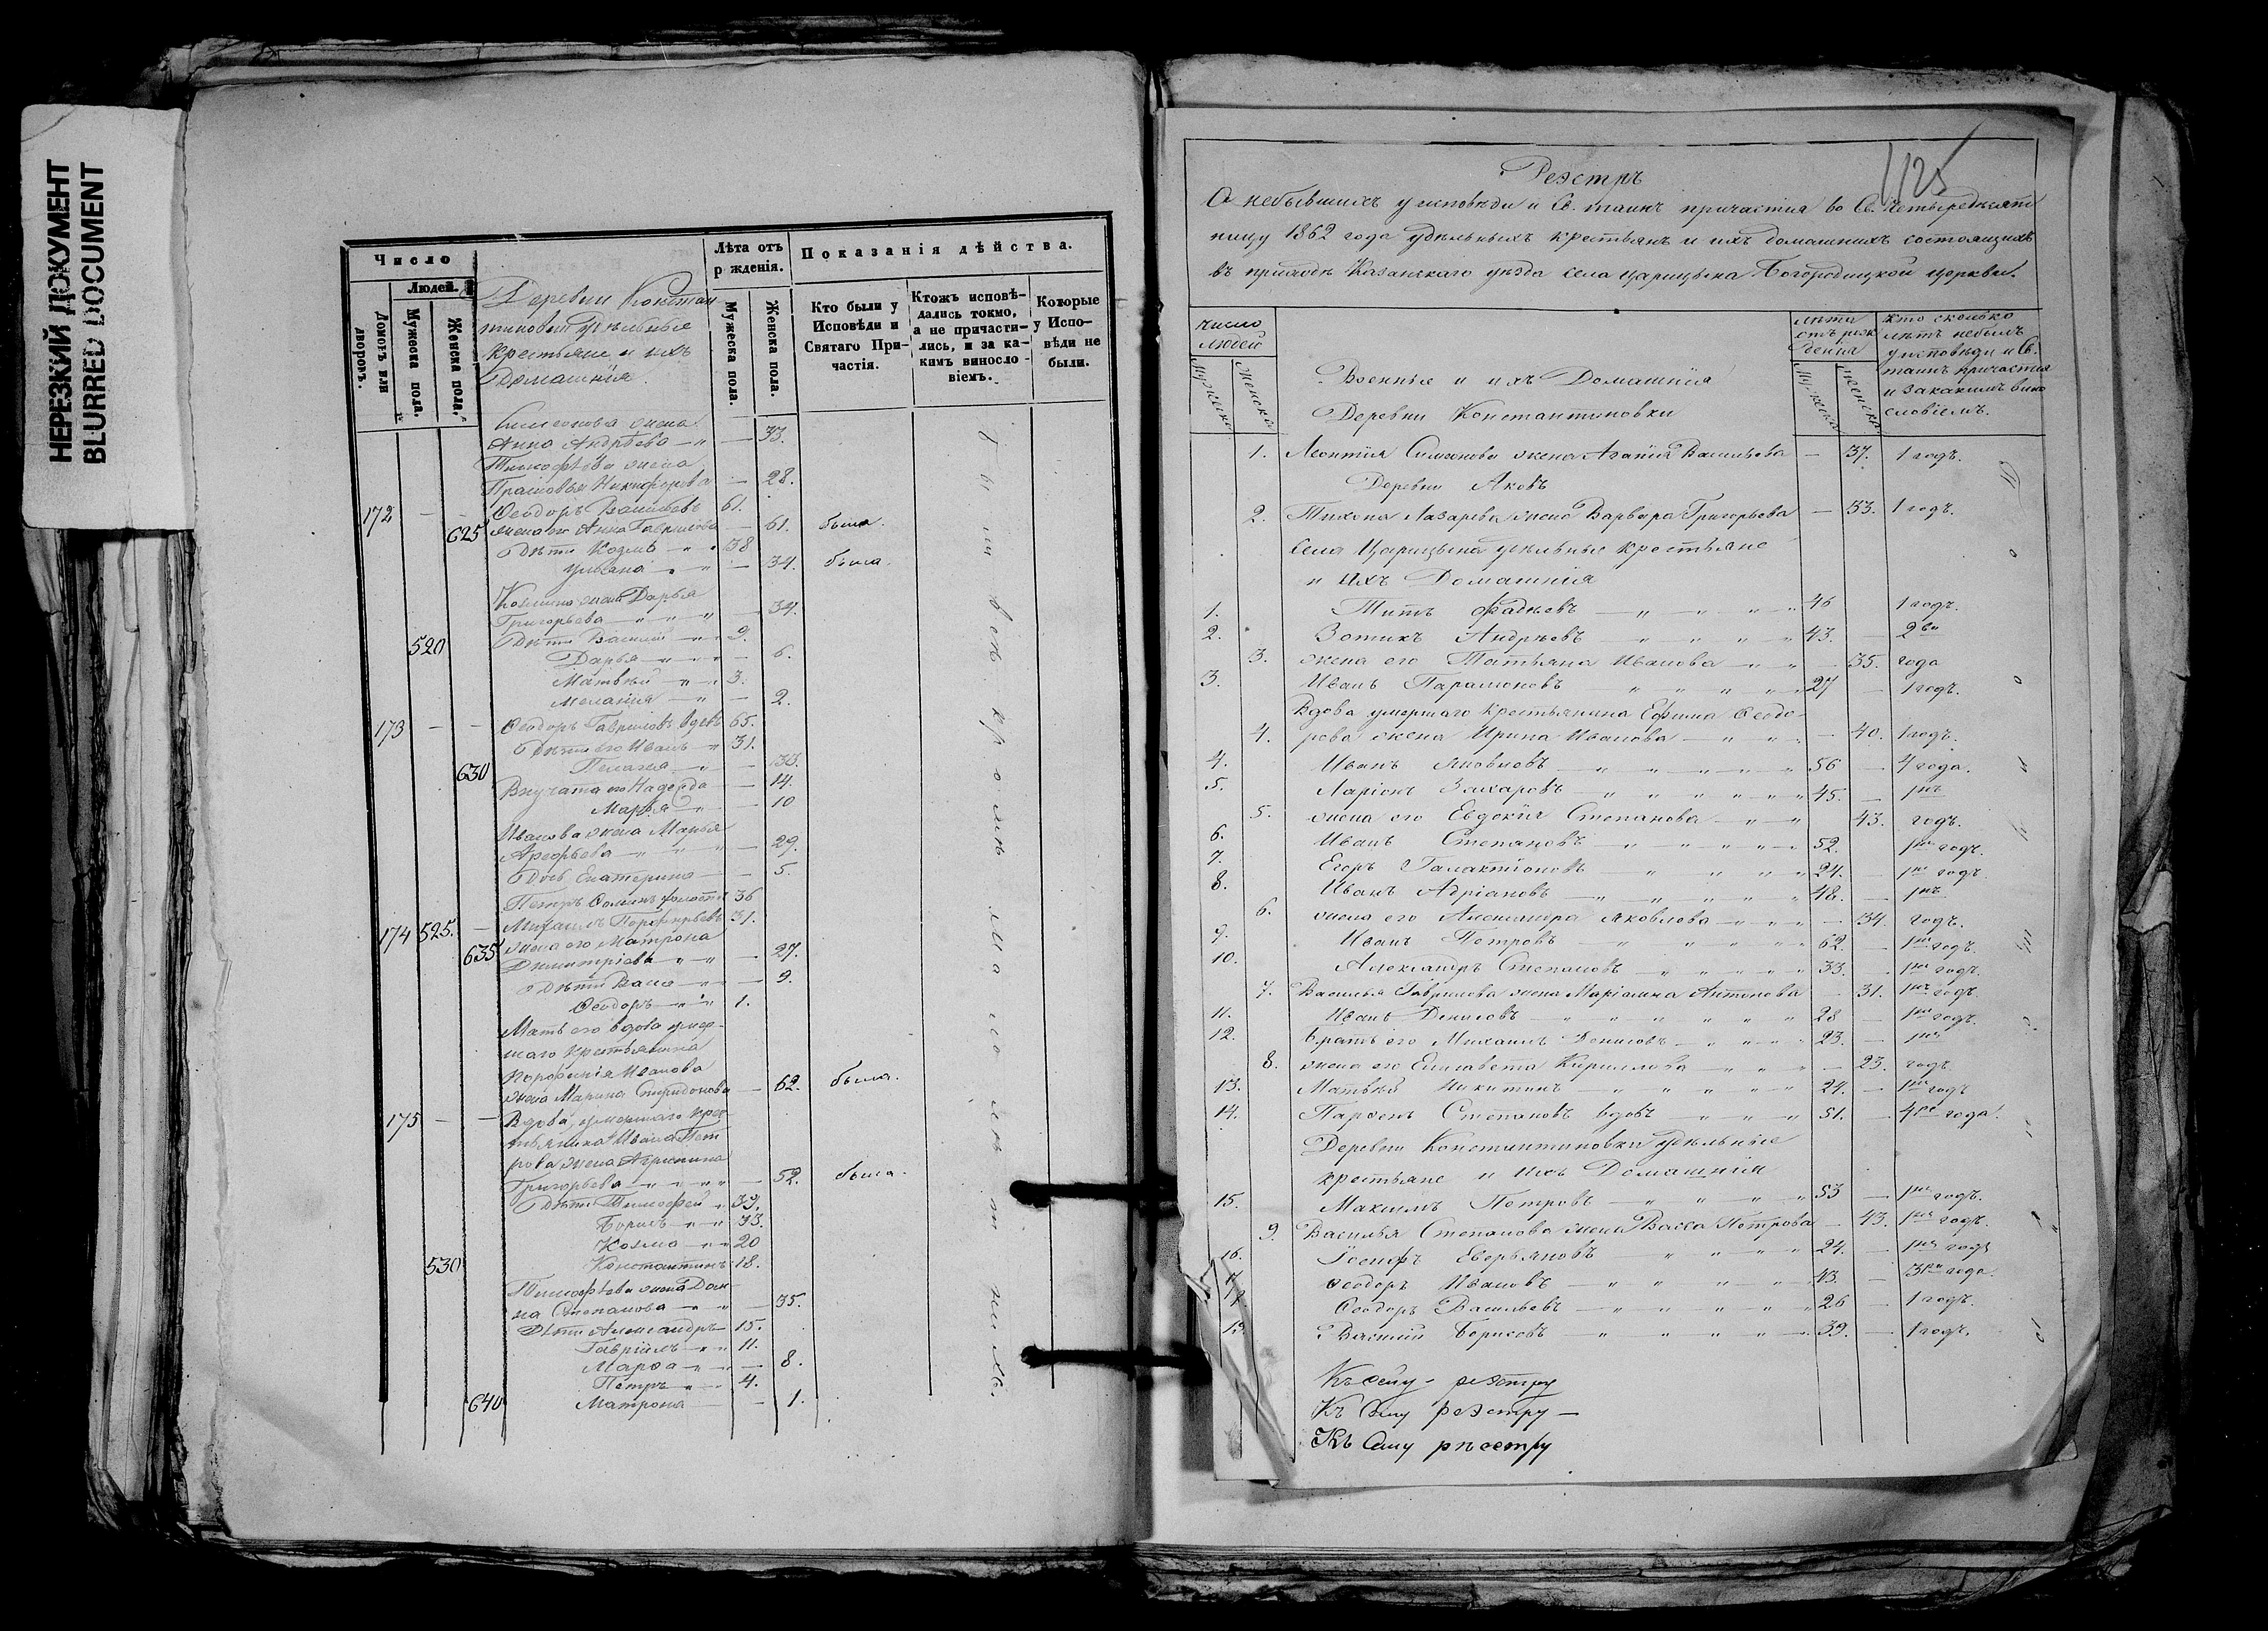 НЕРЕЗКИЙ ДОКУМЕНТ
BLURRED DOCUMENT
Число
Людей.
Домовъ или дворовъ.
Мужеска пола.
Женска пола.
Деревни Констан-
тиновки удѣльные
крестьяне и ихъ
Домашнія.
Лѣта отъ рожденія.
Мужеска пола.
Женска пола.
Показанія дѣйства.
Кто были у Исповѣди и Святаго Причастія.
Ктожъ исповѣдались токмо, а не причастились, и за какимъ винословіемъ.
Которые у Исповѣди не были.
Симеонова жена
Анна Андрѣева — 33.
Тимофѣева жена
Прасковья Никифорова — 28.
172 — — Ѳеодоръ Васильевъ 61.
625 жена его Анна Гаврилова — 61. была.
Дѣти Козма 38
Ульяна — 34. была.
Козмина жена Дарья
Григорьева — 34.
520 Дѣти Василій 9.
Дарья — 6.
Матвѣй 3.
Меланія — 2.
173 — — Ѳеодоръ Гавриловъ вдовъ 65.
Дѣти его Иванъ 31.
630 Пелагея — 33.
Внучата его Надежда — 14.
Марья — 10
Иванова жена Марья
Арефьева — 29.
Дочь Екатерина — 5.
Петръ 36
174 525. — Михаилъ Порфирьевъ 31.
635 жена его Матрона
Димитріева — 27.
Дѣти Васса — 9.
Ѳеодоръ 1.
Мать его вдова умер-
шаго крестьянина
Порфирія Иванова
жена Марина Спиридонова — 62. была.
175 — — Вдова умершаго крес-
тьянина Ивана Пет-
рова жена Агрипина
Григорьева — 52. была.
Дѣти Тимофей 39.
Борисъ 33.
Козма 20
530 Константинъ 18.
Тимофѣева жена Дом-
на Степанова — 35.
Дѣти Александръ 15.
Гавріилъ 11.
Марѳа — 8.
Петръ 4.
640 Матрона — 1.
125
Реэстръ
О небывшихъ у исповѣди и Св. таинъ причастія во Св. четыредесят-
ницу 1862 года удѣльныхъ крестьянъ и ихъ домашнихъ состоящихъ
въ приходѣ Казанскаго уѣзда села Царицына Богородицкой церкви.
число людей
Мужеска
Женска
Военные и ихъ Домашнія
Деревни Константиновки
лѣта отъ рождения
Мужеска
Женска
Кто сколько
лѣтъ небылъ
у исповѣди и Св.
таинъ причастія
и за какимъ вино
словіемъ.
1. Леонтія Симеонова жена Агапія Васильева — 37. 1 годъ.
Деревни Аковъ
2. Тихона Лазарева жена Варвара Григорьева — 53. 1 годъ.
Села Царицына удѣльные крестьяне
и ихъ Домашнія
1. Титъ Фадѣевъ 46 1 годъ.
2. Зотикъ Андрѣевъ 43. — 2ва
3. жена его Татьяна Иванова — 35. года
3. Иванъ Парамоновъ 27 — 1 годъ.
Вдова умершаго крестьянина Ефима Ѳеодо-
4. рова жена Ирина Иванова — 40. 1 годъ.
4. Иванъ Яковлевъ 56 — 4 года.
5. Ларіонъ Захаровъ 45. — 1нъ
5. жена его Евдокія Степанова 43. годъ.
6. Иванъ Степановъ 52. 1нъ годъ.
7. Егоръ Галактіоновъ 24. 1нъ годъ
8. Иванъ Адріановъ 48. — 1нъ
6. жена его Александра Яковлева — 34. годъ.
9. Иванъ Петровъ 62. — 1нъ годъ.
10. Александръ Степановъ 33. — 1нъ годъ.
7. Василья Гаврилова жена Маріамна Антонова — 31. 1нъ годъ.
11. Иванъ Денисовъ 28 — 1нъ годъ.
12. братъ его Михаилъ Денисовъ 23. — 1нъ
8. жена его Елизавета Кириллова — 23. годъ
13. Матвѣй Никитинъ 24. — 1нъ годъ
14. Парѳенъ Степановъ вдовъ 51. — 4ре года.
Деревни Константиновки удѣльные
крестьяне и ихъ Домашнія
15. Максимъ Петровъ 53 — 1нъ годъ.
9. Василья Степанова жена Васса Петрова — 43. 1нъ годъ.
16. Іосифъ Аверьяновъ 24. — 1нъ годъ
17 Ѳеодоръ Ивановъ 43. — 3ри года.
Ѳеодоръ Васильевъ 26 — 1 годъ.
19. Василій Борисовъ 39. — 1 годъ.
Къ сему реэстру
Къ Сему реэстру —
Къ Сему рѣестру